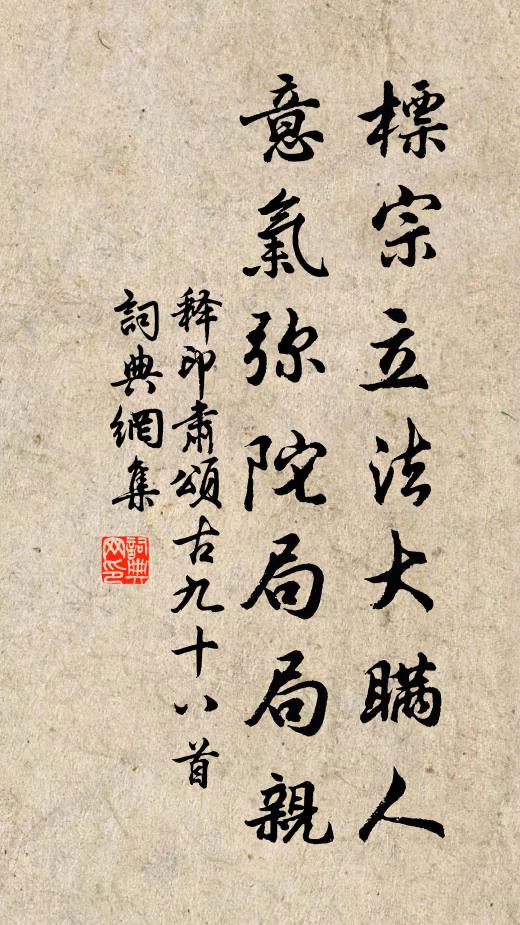 標宗立法大瞞人
意氣弥陀局局親
释印肅頌古九十八首
詞典網集
詞典网印